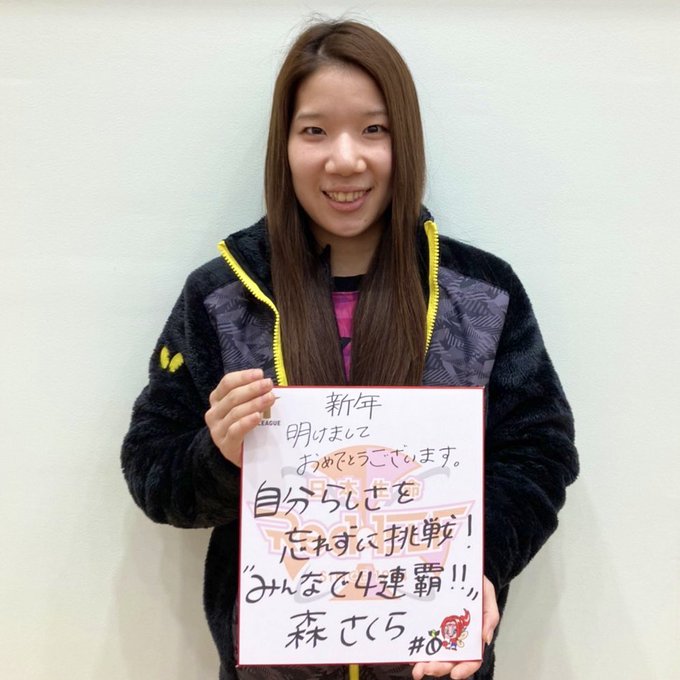 LEAGUE
新年
明けまして
おめでとうございます。
日本生命
Red Elf
自分らしさを
忘れずに挑戦!
"みんなで4連覇!!"
森さくら